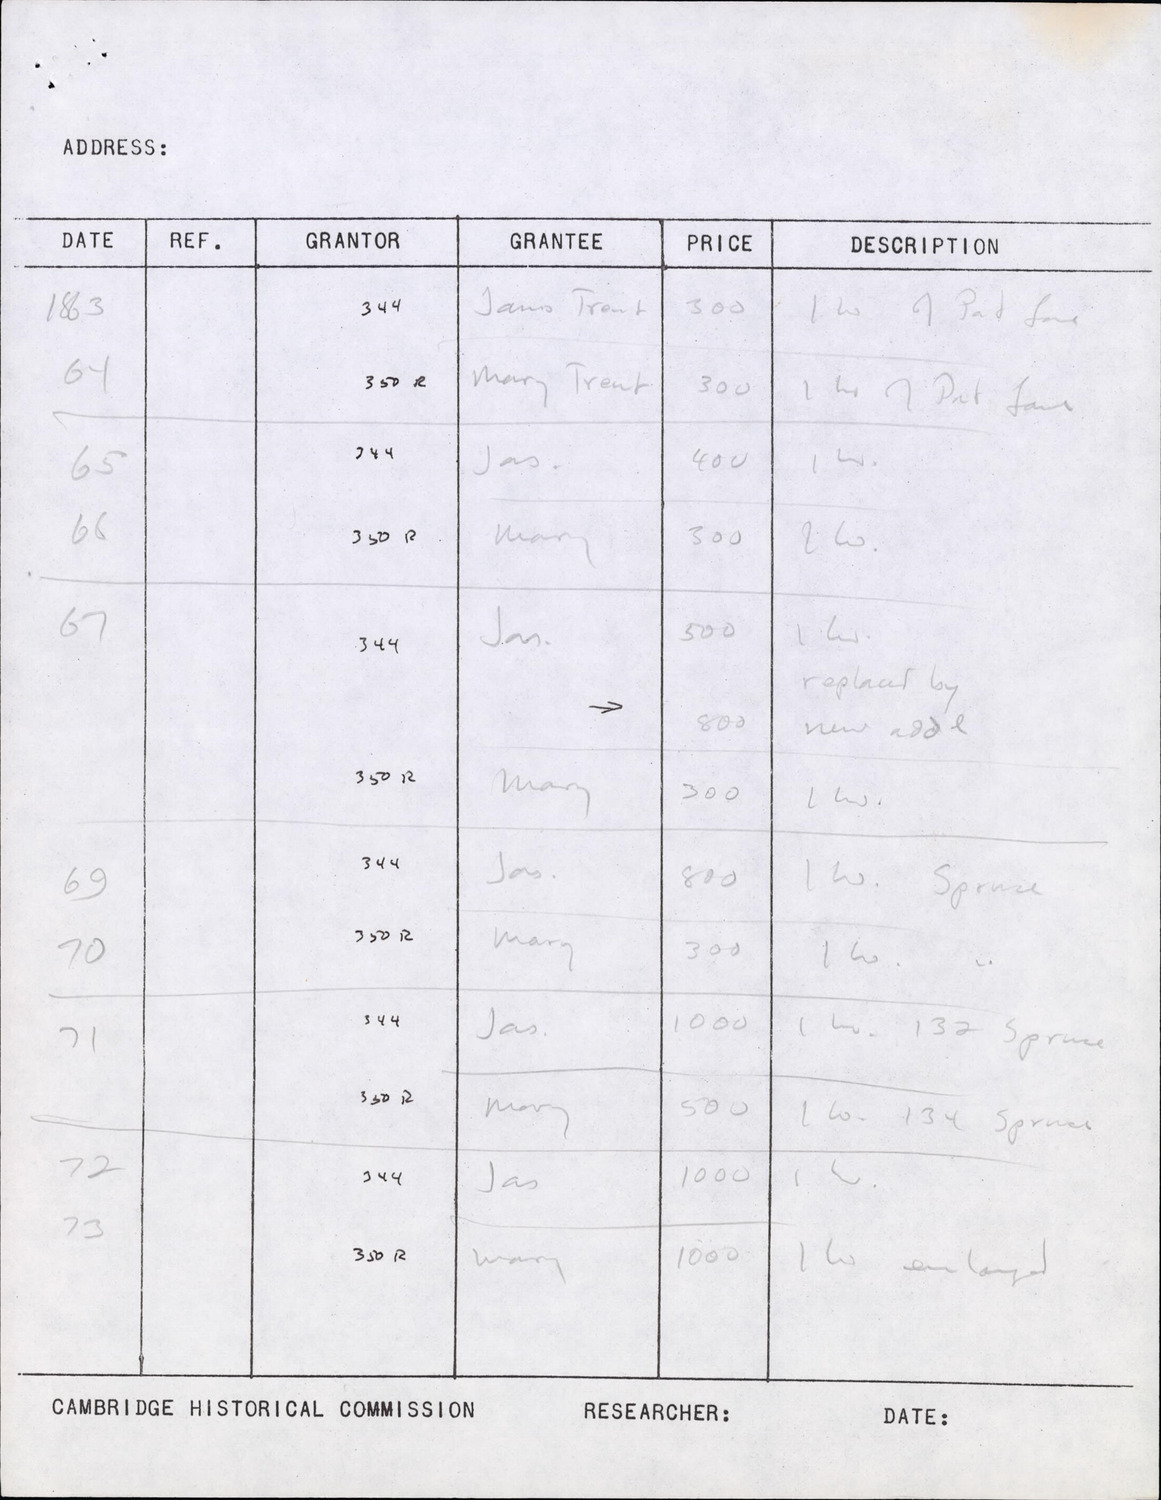 ADDRESS:
DATE REF. GRANTOR GRANTEE PRICE DESCRIPTION
1863 344 James Trent 300 1 ho
64 350 R Mary Trent 300 1 ho
65 344 Jas. 400 1 ho.
66 350 R Mary 300 ho.
67 344 Jas. 500 1 ho.
replaced by
→ 800 new
350 R Mary 300 1 ho.
69 344 Jas. 800 1 ho. Spruce
70 350 R Mary 300 1 ho. "
71 344 Jas. 1000 1 ho. 132 Spruce
350 R Mary 500 1 ho. 134 Spruce
72 344 Jas 1000 1 ho.
73
350 R Mary 1000 1 ho enlarged
CAMBRIDGE HISTORICAL COMMISSION RESEARCHER: DATE: